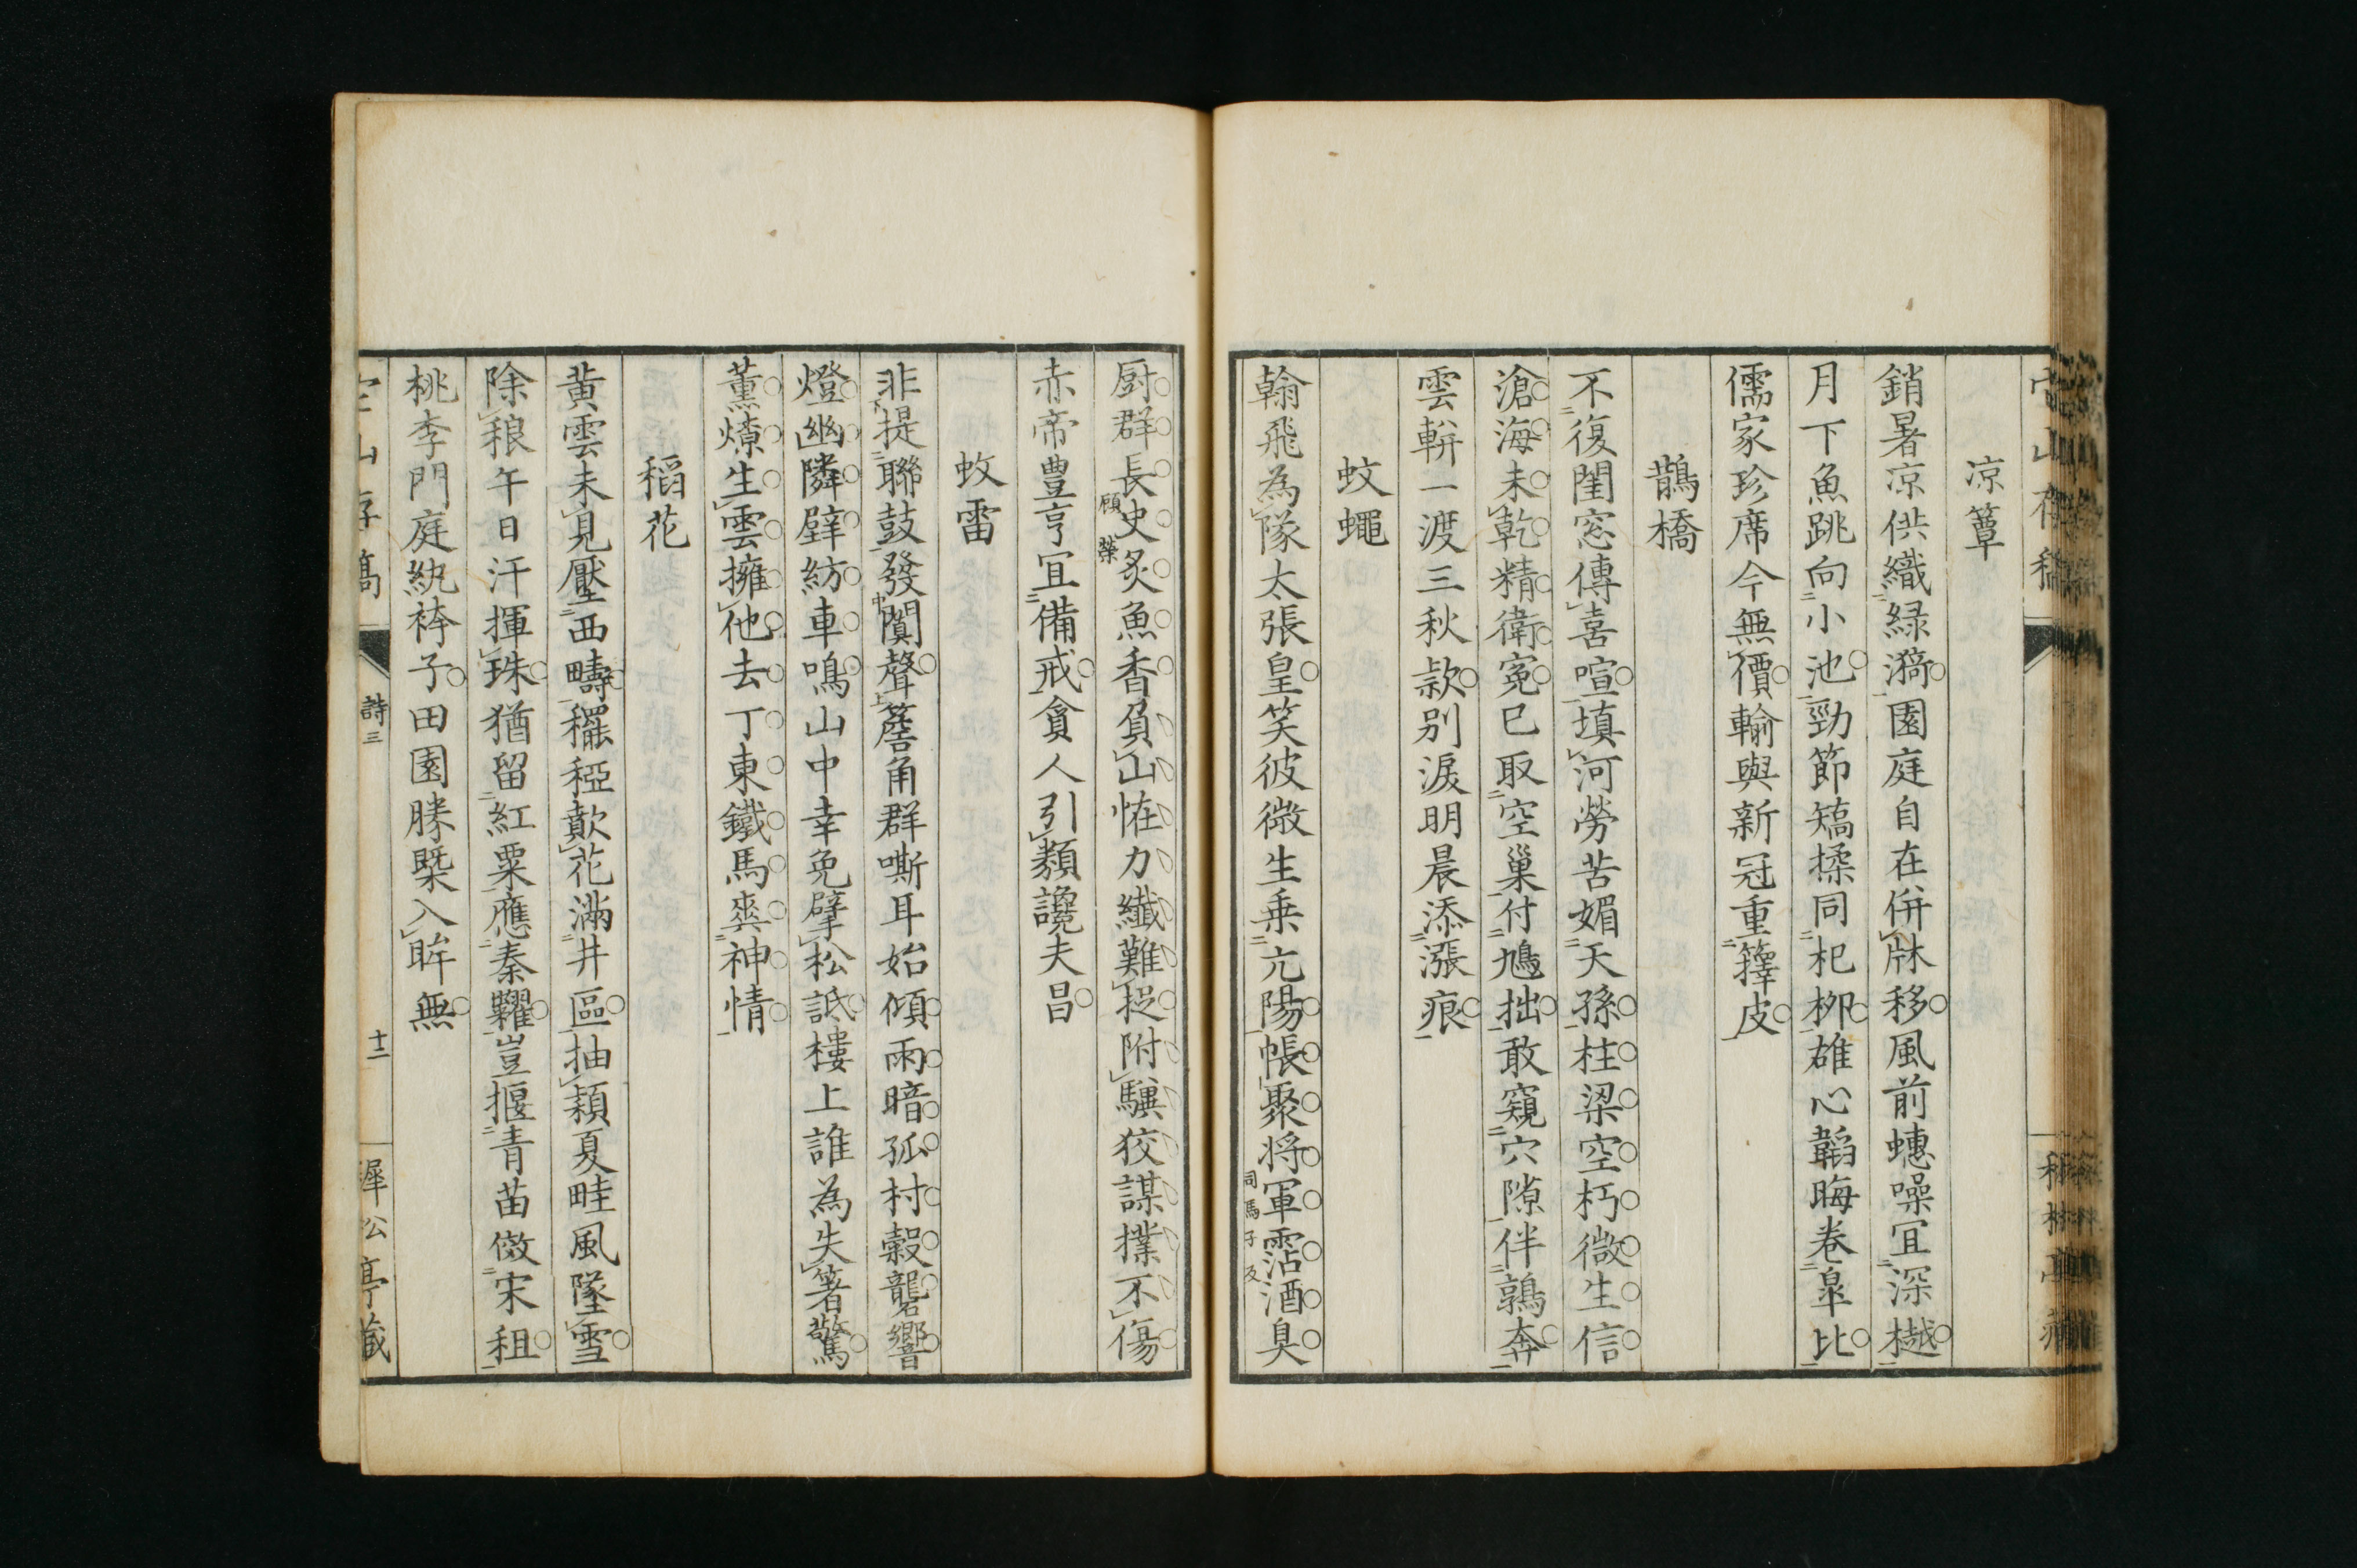 凉簟
銷暑凉供織緑漪園庭自在倂牀移風前蟪噪宜深樾
月下魚跳向小池勁節矯揉同杞柳雄心韜晦卷皐比
儒家珍席今無價輸與新冠重籜皮
鵲橋
不復閨窓傳喜喧填河勞苦媚天孫柱梁空朽微生信
滄海未乾精衛寃已取空巢付鳩拙敢窺穴隙伴鶉奔
雲軿一渡三秋款别淚明晨添漲痕
蚊蠅
翰飛為隊太張皇笑彼微生乗亢陽帳聚将軍霑酒臭
司馬子反
厨群長史炙魚香負山恠力纖難捉附驥狡謀撲不傷
顧榮
赤帝豊亨宜備戒貪人引類讒夫昌
蚊雷
非提聯鼓發闐聲簷角群嘶耳始傾雨暗孤村轂礱響
燈幽隣壁紡車鳴山中幸免擘松詆樓上誰為失箸驚
薫燎生雲擁他去丁東鐵馬爽神情
稻花
黄雲未見壓西疇䆉稏歕花滿井區抽穎夏畦風墜雪
除稂午日汗揮珠猶留紅粟應秦糶豈揠青苗倣宋租
桃李門庭紈袴子田園勝槩入眸無
山存稿
詩三
十二
墀公亭藏